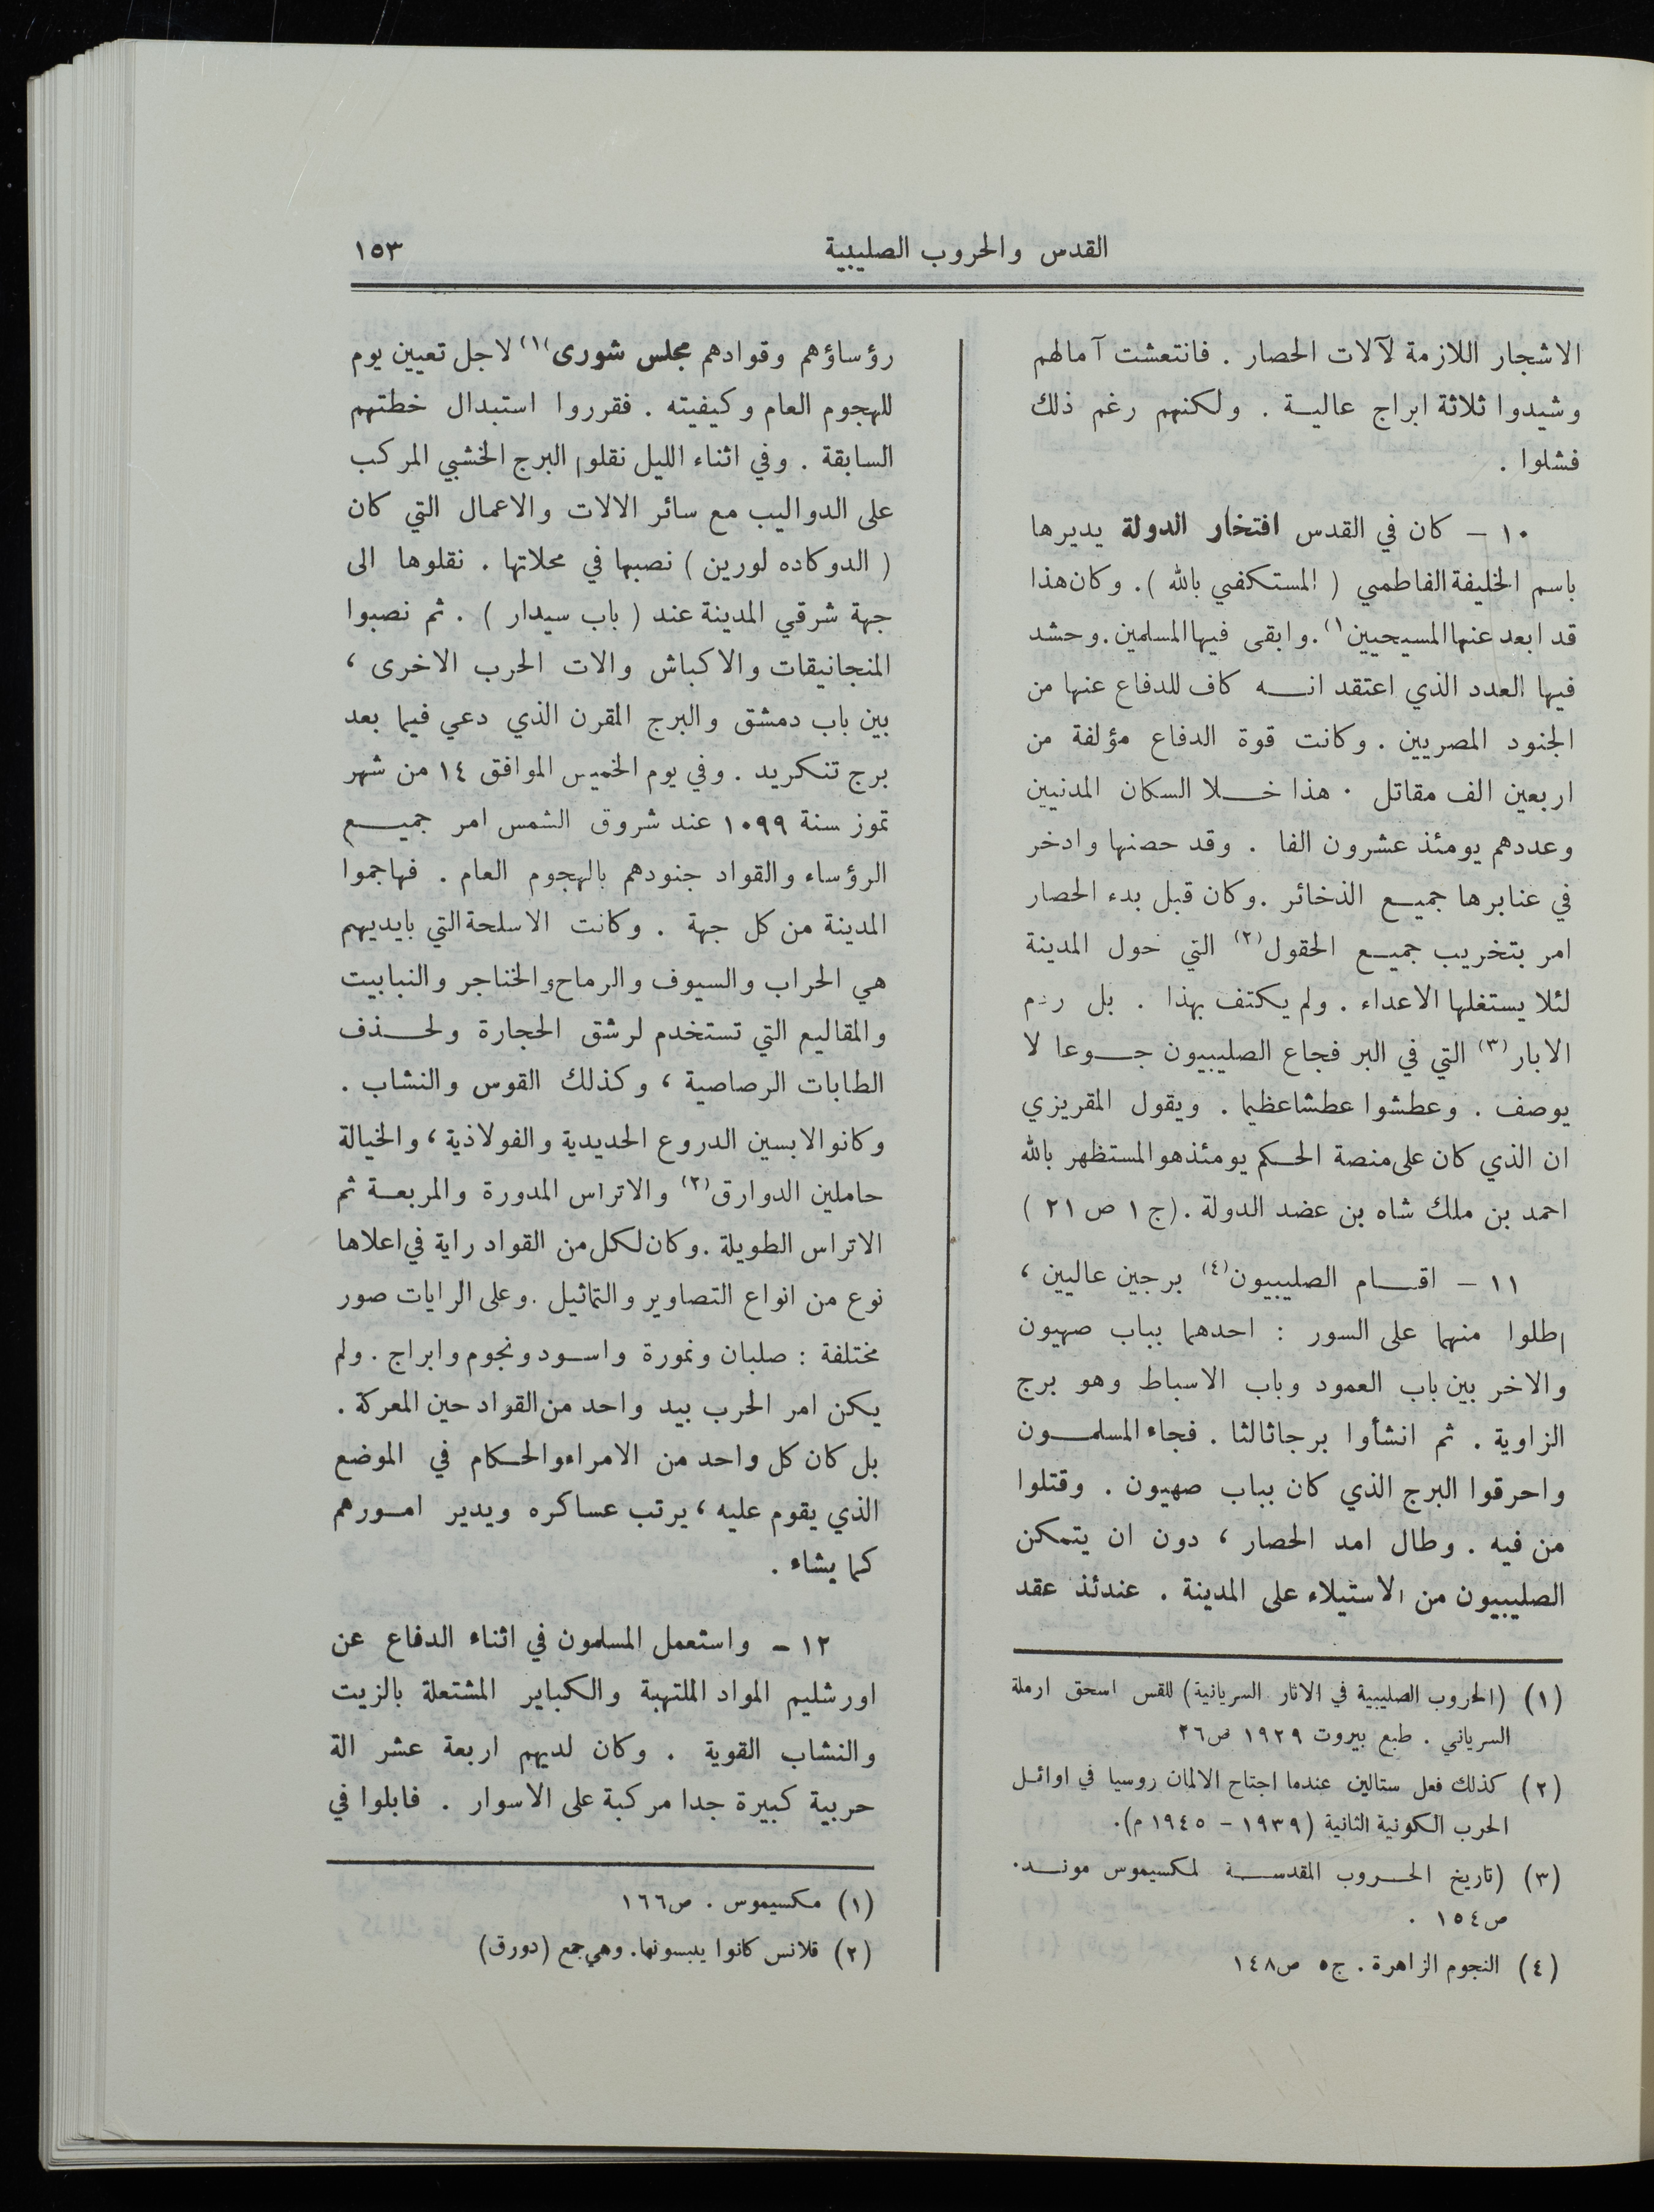 القدس والحروب الصليبية
١٥٣
الاشجار اللازمة لآلات الحصار . فانتعشت آمالهم
وشيدوا ثلاثة ابراج عالية . ولكنهم رغم ذلك
فشلوا .
١٠ – كان في القدس افتخار الدولة يديرها
باسم الخليفة الفاطمي ( المستكفي بالله ) . وكان هذا
قد ابعد عنها المسيحيين(١) . وابقى فيها المسلمين . وحشد
فيها العدد الذي اعتقد انه كاف للدفاع عنها من
الجنود المصريين . وكانت قوة الدفاع مؤلفة من
اربعين الف مقاتل . هذا خلا السكان المدنيين
وعددهم يومئذ عشرون الفا . وقد حصنها وادخر
في عنابرها جميع الذخائر . وكان قبل بدء الحصار
امر بتخريب جميع الحقول(٢) التي حول المدينة
لئلا يستغلها الاعداء . ولم يكتف بهذا . بل ردم
الابار(٣) التي في البر فجاع الصليبيون جوعا لا
يوصف . وعطشوا عطشا عظيما . ويقول المقريزي
ان الذي كان على منصة الحكم يومئذ هو المستظهر بالله
احمد بن ملك شاه بن عضد الدولة . (ج ١ ص ٢١ )
١١ – اقام الصليبيون(٤) برجين عاليين ،
اطلوا منهما على السور : احدهما بباب صهيون
والاخر بين باب العمود وباب الاسباط وهو برج
الزاوية . ثم انشأوا برجا ثالثا . فجاء المسلمون
واحرقوا البرج الذي كان بباب صهيون . وقتلوا
من فيه . وطال امد الحصار ، دون ان يتمكن
الصليبيون من الاستيلاء على المدينة . عندئذ عقد
(١) (الحروب الصليبية في الاثار السريانية) للقس اسحق ارملة
السرياني . طبع بيروت ١٩٢٩ ص٢٦
(٢) كذلك فعل ستالين عندما اجتاح الالمان روسيا في اوائل
الحرب الكونية الثانية (١٩٣٩ – ١٩٤٥ م).
(٣) (تاريخ الحروب المقدسة لمكسيموس موند.
ص١٥٤ .
(٤) النجوم الزاهرة . ج٥ ص١٤٨
رؤساؤهم وقوادهم مجلس شورى(١) لاجل تعيين يوم
للهجوم العام وكيفيته . فقرروا استبدال خطتهم
السابقة . وفي اثناء الليل نقلوا البرج الخشبي المركب
على الدواليب مع سائر الالات والاعمال التي كان
( الدوكاده لورين ) نصبها في محلاتها . نقلوها الى
جهة شرقي المدينة عند ( باب سيدار ) . ثم نصبوا
المنجانيقات والاكباش والات الحرب الاخرى ،
بين باب دمشق والبرج المقرن الذي دعي فيما بعد
برج تنكريد . وفي يوم الخميس الموافق ١٤ من شهر
تموز سنة ١٠٩٩ عند شروق الشمس امر جميع
الرؤساء والقواد جنودهم بالهجوم العام . فهاجموا
المدينة من كل جهة . وكانت الاسلحة التي بايديهم
هي الحراب والسيوف والرماح والخناجر والنبابيت
والمقاليع التي تستخدم لرشق الحجارة ولحذف
الطابات الرصاصية ، وكذلك القوس والنشاب .
وكانوا لابسين الدروع الحديدية والفولاذية ، والخيالة
حاملين الدوارق(٢) والاتراس المدورة والمربعة ثم
الاتراس الطويلة . وكان لكل من القواد راية في اعلاها
نوع من انواع التصاوير والتماثيل . وعلى الرايات صور
مختلفة : صلبان ونمورة واسود ونجوم وابراج . ولم
يكن امر الحرب بيد واحد من القواد حين المعركة .
بل كان كل واحد من الامراء والحكام في الموضع
الذي يقوم عليه ، يرتب عساكره ويدير امورهم
كما يشاء .
١٢ – واستعمل المسلمون في اثناء الدفاع عن
اورشليم المواد الملتهبة والكباير المشتعلة بالزيت
والنشاب القوية . وكان لديهم اربعة عشر الة
حربية كبيرة جدا مركبة على الاسوار . فابلوا في
(١) مكسيموس . ص١٦٦
(٢) قلانس كانوا يلبسونها. وهي جمع (دورق)